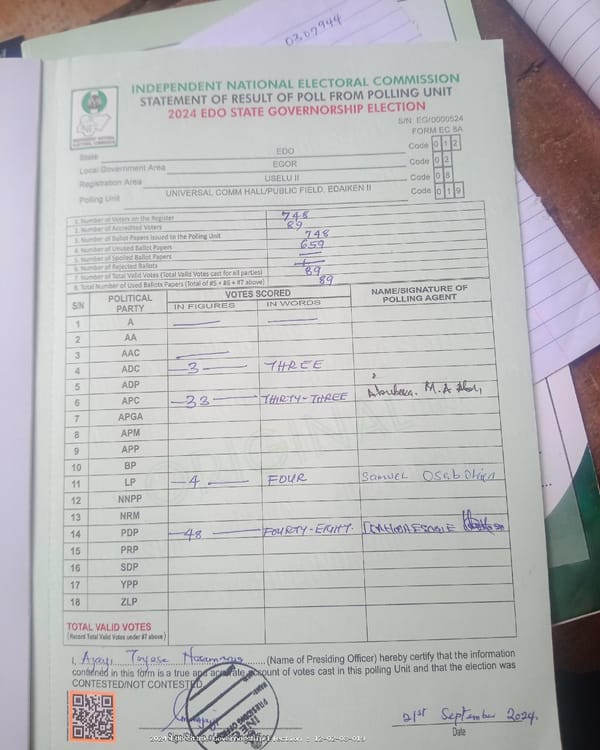 0307944
INDEPENDENT NATIONAL ELECTORAL COMMISSION
STATEMENT OF RESULT OF POLL FROM POLLING UNIT
2024 EDO STATE GOVERNORSHIP ELECTION
S/N EG/0000524
FORM EC 8A
State EDO Code 0 1 2
Local Government Area EGOR Code 0 2
Registration Area USELU II Code 0 8
Polling Unit UNIVERSAL COMM HALL/PUBLIC FIELD, EDAIKEN II Code 0 1 9
1. Number of Voters on the Register 748
2. Number of Accredited Voters 89
3. Number of Ballot Papers Issued to the Polling Unit 748
4. Number of Unused Ballot Papers 659
5. Number of Spoiled Ballot Papers —
6. Number of Rejected Ballots
7. Number of Total Valid Votes (Total Valid Votes cast for all parties) 89
8. Total Number of Used Ballots Papers (Total of #5 + #6 + #7 above) 89
S/N POLITICAL PARTY VOTES SCORED NAME/SIGNATURE OF POLLING AGENT
IN FIGURES IN WORDS
1 A — —
2 AA
3 AAC —
4 ADC — 3 — THREE
5 ADP
6 APC — 33 — THIRTY-THREE M.A
7 APGA
8 APM
9 APP
10 BP
11 LP — 4 — FOUR Samuel
12 NNPP
13 NRM
14 PDP — 48 — FOURTY-EIGHT.
15 PRP
16 SDP
17 YPP
18 ZLP
TOTAL VALID VOTES
(Record Total Valid Votes under #7 above)
I, Ajayi (Name of Presiding Officer) hereby certify that the information
contained in this form is a true and accurate account of votes cast in this polling Unit and that the election was
CONTESTED/NOT CONTESTED.
21st September 2024.
Date
ORIGINAL
INEC
PRESIDING OFFICER
2024 Edo State Governorship Election - 12-02-08-019